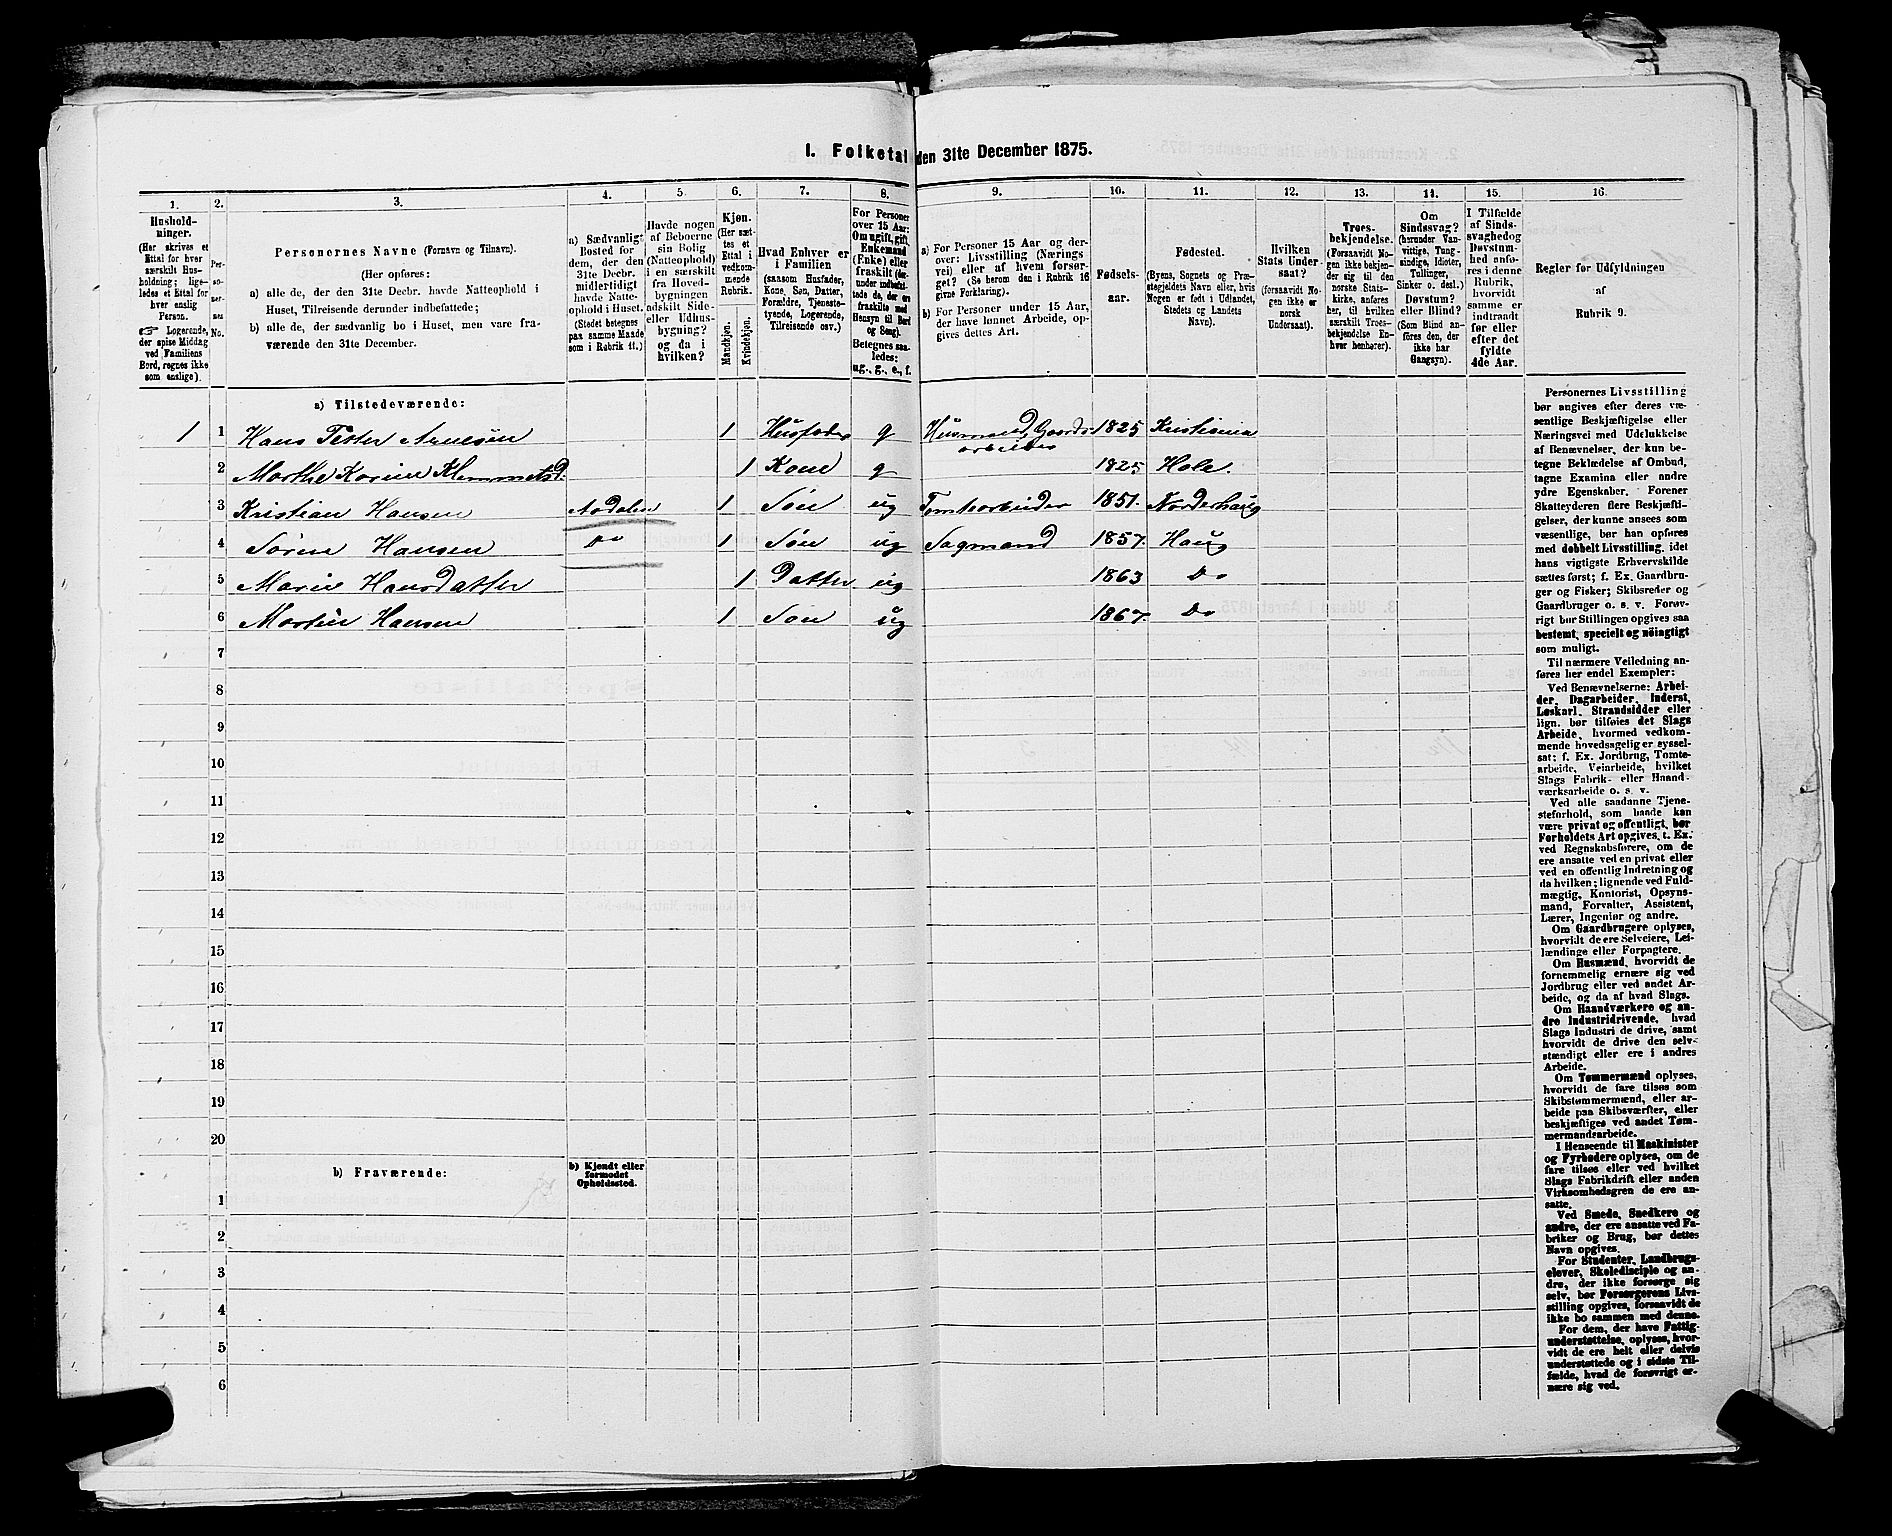 I. Folketal den 31te December 1875.
1. 2. 3. 4. 5. 6. 7. 8. 9. 10. 11. 12. 13. 14. 15. 16.
Hushold-
ninger.
(Her skrives et
Ettal for hver
særskilt Hus-
holdning; lige-
ledes et Ettal for
hver enslig
Person.
Logerende,
der spise Middag
ved Familiens
Bord, regnes ikke
som enslige).
Per-
so-
ner-
nes
No.
Personernes Navne (Fornavn og Tilnavn).
(Her opføres:
a) alle de, der den 31te Decbr. havde Natteophold i
Huset, Tilreisende derunder indbefattede;
b) alle de, der sædvanlig bo i Huset, men vare fra-
værende den 31te December.
a) Sædvanligt
Bosted for
dem, der den
31te Decbr.
midlertidigt
havde Natte-
ophold i Huset.
(Stedet betegnes
paa samme Maade
som i Rubrik 11.)
Havde nogen
af Beboerne
sin Bolig
(Natteophold)
i en særskilt
fra Hoved-
bygningen
adskilt Side-
eller Udhus-
bygning?
og da i
hvilken?
Kjøn.
(Her sæt-
tes et
Ettal i
vedkom-
mende
Rubrik.
Mandkjøn.
Kvindekjøn.
Hvad Enhver er
i Familien
(saasom Husfader,
Kone, Søn, Datter,
Forældre, Tjeneste-
tyende, Logerende,
Tilreisende osv.)
For Personer
over 15 Aar:
Om ugift, gift,
Enkemand
(Enke) eller
fraskilt (der-
under indbefat-
tede de, der ere
fraskilte med
Hensyn til Bord
og Seng).
Betegnes saa-
ledes:
ug., g., e., f.
a) For Personer 15 Aar og der-
over: Livsstilling (Nærings
vei) eller af hvem forsør-
get? (Se herom den i Rubrik 16
givne Forklaring).
b) For Personer under 15 Aar,
der have lønnet Arbeide, op-
gives dettes Art.
Fødsels-
aar.
Fødested.
(Byens, Sognets og Præ-
stegjeldets Navn eller, hvis
Nogen er født i Udlandet,
Stedets og Landets
Navn).
Hvilken
Stats Under-
saat?
(forsaavidt No-
gen ikke er
norsk
Undersaat).
Troes-
bekjendelse.
(Forsaavidt No-
gen ikke bekjen-
der sig til den
norske Stats-
kirke, anføres
her, til hvilken
særskilt Troes-
bekjendelse En-
hver henhører).
Om
Sindssvag?
(herunder Van-
vittige, Tung-
sindige, Idioter,
Tullinger,
Sinker o. desl.)
Døvstum?
eller Blind?
(Som Blind an-
føres den, der
ikke har
Gangsyn).
I Tilfælde
af Sinds-
svaghed og
Døvstum-
hed anfø-
res i denne
Rubrik,
hvorvidt
samme er
indtraadt
før eller
efter det
fyldte
4de Aar.
Regler for Udfyldningen
af
Rubrik 9.
a) Tilstedeværende:
1 1 Hans Petter Arnesen 1 Husfader g Husmand, Gaards-
arbeider 1825 Kristiania
2 Marthe Karine Klemmetsd. 1 Kone g 1825 Hole.
3 Kristian Hansen Aadalen 1 Søn ug Tomtearbeider 1851. Norderhaug
4 Søren Hansen Do 1 Søn ug Sagmand 1857. Haug
5 Marie Hansdatter 1 Datter ug 1863 Do
6 Martin Hansen 1 Søn ug 1867. Do
7
8
9
10
11
12
13
14
15
16
17
18
19
20
b) Fraværende:
b) Kjendt eller
formodet
Opholdssted.
1
2
3
4
5
6
Personernes Livsstilling
bør angives efter deres væ-
sentlige Beskjæftigelse eller
Næringsvei med Udelukkelse
af Benævnelser, der kun be-
tegne Beklædelse af Ombud,
tagne Examina eller andre
ydre Egenskaber. Forener
Skatteyderen flere Beskjæfti-
gelser, der kunne ansees som
væsentlige, bør han opføres
med dobbelt Livsstilling, idet
hans vigtigste Erhvervskilde
sættes først; f. Ex. Gaardbru-
ger og Fisker; Skibsreder og
Gaardbruger o. s. v. Forøv-
rigt bør Stillingen opgives saa
bestemt, specielt og nöiagtigt
som muligt.
Til nærmere Veiledning an-
føres her endel Exempler:
Ved Benævnelserne: Arbei-
der, Dagarbeider, Inderst,
Løskarl, Strandsidder eller
lign. bør tilføies det Slags
Arbeide, hvormed vedkom-
mende hovedsagelig er syssel-
sat; f. Ex. Jordbrug, Tomte-
arbeide, Veiarbeide, hvilket
Slags Fabrik- eller Haand-
værksarbeide o. s. v.
Ved alle saadanne Tjene-
steforhold, som baade kan
være privat og offentligt, bør
Forholdets Art opgives, t. Ex.
ved Regnskabsførere, om de
ere ansatte ved en privat eller
ved en offentlig Indretning og
da hvilken; lignende ved Fuld-
mægtig, Kontorist, Opsyns-
mand, Forvalter, Assistent,
Lærer, Ingeniør og andre.
Om Gaardbrugere oplyses,
hvorvidt de ere Selveiere, Lei-
lændinge eller Forpagtere.
Om Husmænd, hvorvidt de
fornemmelig ernære sig ved
Jordbrug eller ved andet Ar-
beide, og da af hvad Slags.
Om Haandværkere og an-
dre Industridrivende, hvad
Slags Industri de drive, samt
hvorvidt de drive den selv-
stændigt eller ere i andres
Arbeide.
Om Tømmermænd oplyses,
hvorvidt de fare tilsøs som
Skibstømmermænd, eller ar-
beide paa Skibsværfter, eller
beskjæftiges ved andet Tøm-
mermandsarbeide.
I Henseende til Maskinister
og Fyrbødere oplyses, om de
fare tilsøs eller ved hvilket
Slags Fabrikdrift eller anden
Virksomhedsgren de ere an-
satte.
Ved Smede, Snedkere og
andre, der ere ansatte ved Fa-
briker og Brug, bør dettes
Navn opgives.
For Studenter, Landbrugs-
elever, Skoledisciple og an-
dre, der ikke forsørge sig
selv, bør Forsørgerens Livs-
stilling opgives, forsaavidt de
ikke bo sammen med denne.
For dem, der have Fattig-
understøttelse, oplyses, hvor-
vidt de ere helt eller delvis
understøttede og i sidste Til-
fælde, hvad de forøvrigt er-
nære sig ved.